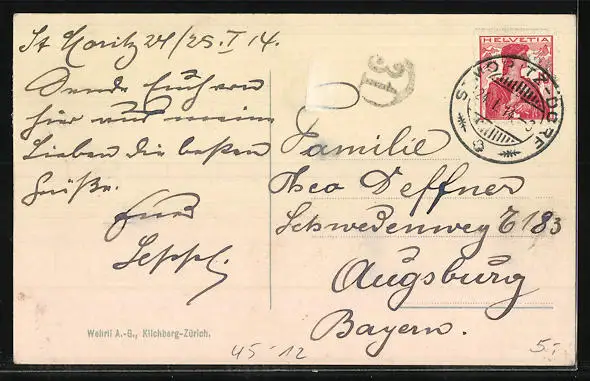 St Moritz 24/25. I 14.
Sende Euch von
hier aus meine
Lieben die besten
Grüße.
Euer
Seppl.
Familie
Theo Deffner
Schwedenweg E 183
Augsburg
Bayern.
HELVETIA
ST. MORITZ-DORF
31
Wehrli A.-G., Kilchberg-Zürich.
45-12
5.-